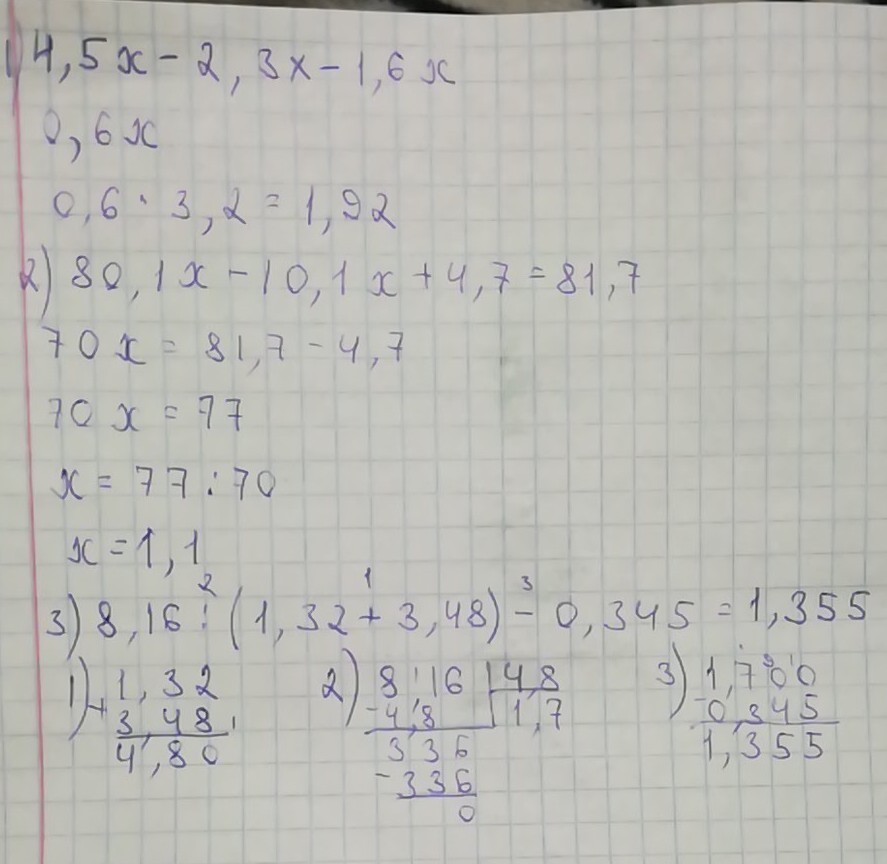 1) 4,5x - 2,3x - 1,6x
0,6x
0,6 · 3,2 = 1,92
2) 80,1x - 10,1x + 4,7 = 81,7
70x = 81,7 - 4,7
70x = 77
x = 77 : 70
x = 1,1
2 1 3
3) 8,16 : (1,32 + 3,48) - 0,345 = 1,355
1) 1,32 2) 8,16 | 4,8 3) 1,700
+ 3,48 - 4,8 1,7 - 0,345
4,80 336 1,355
- 336
0